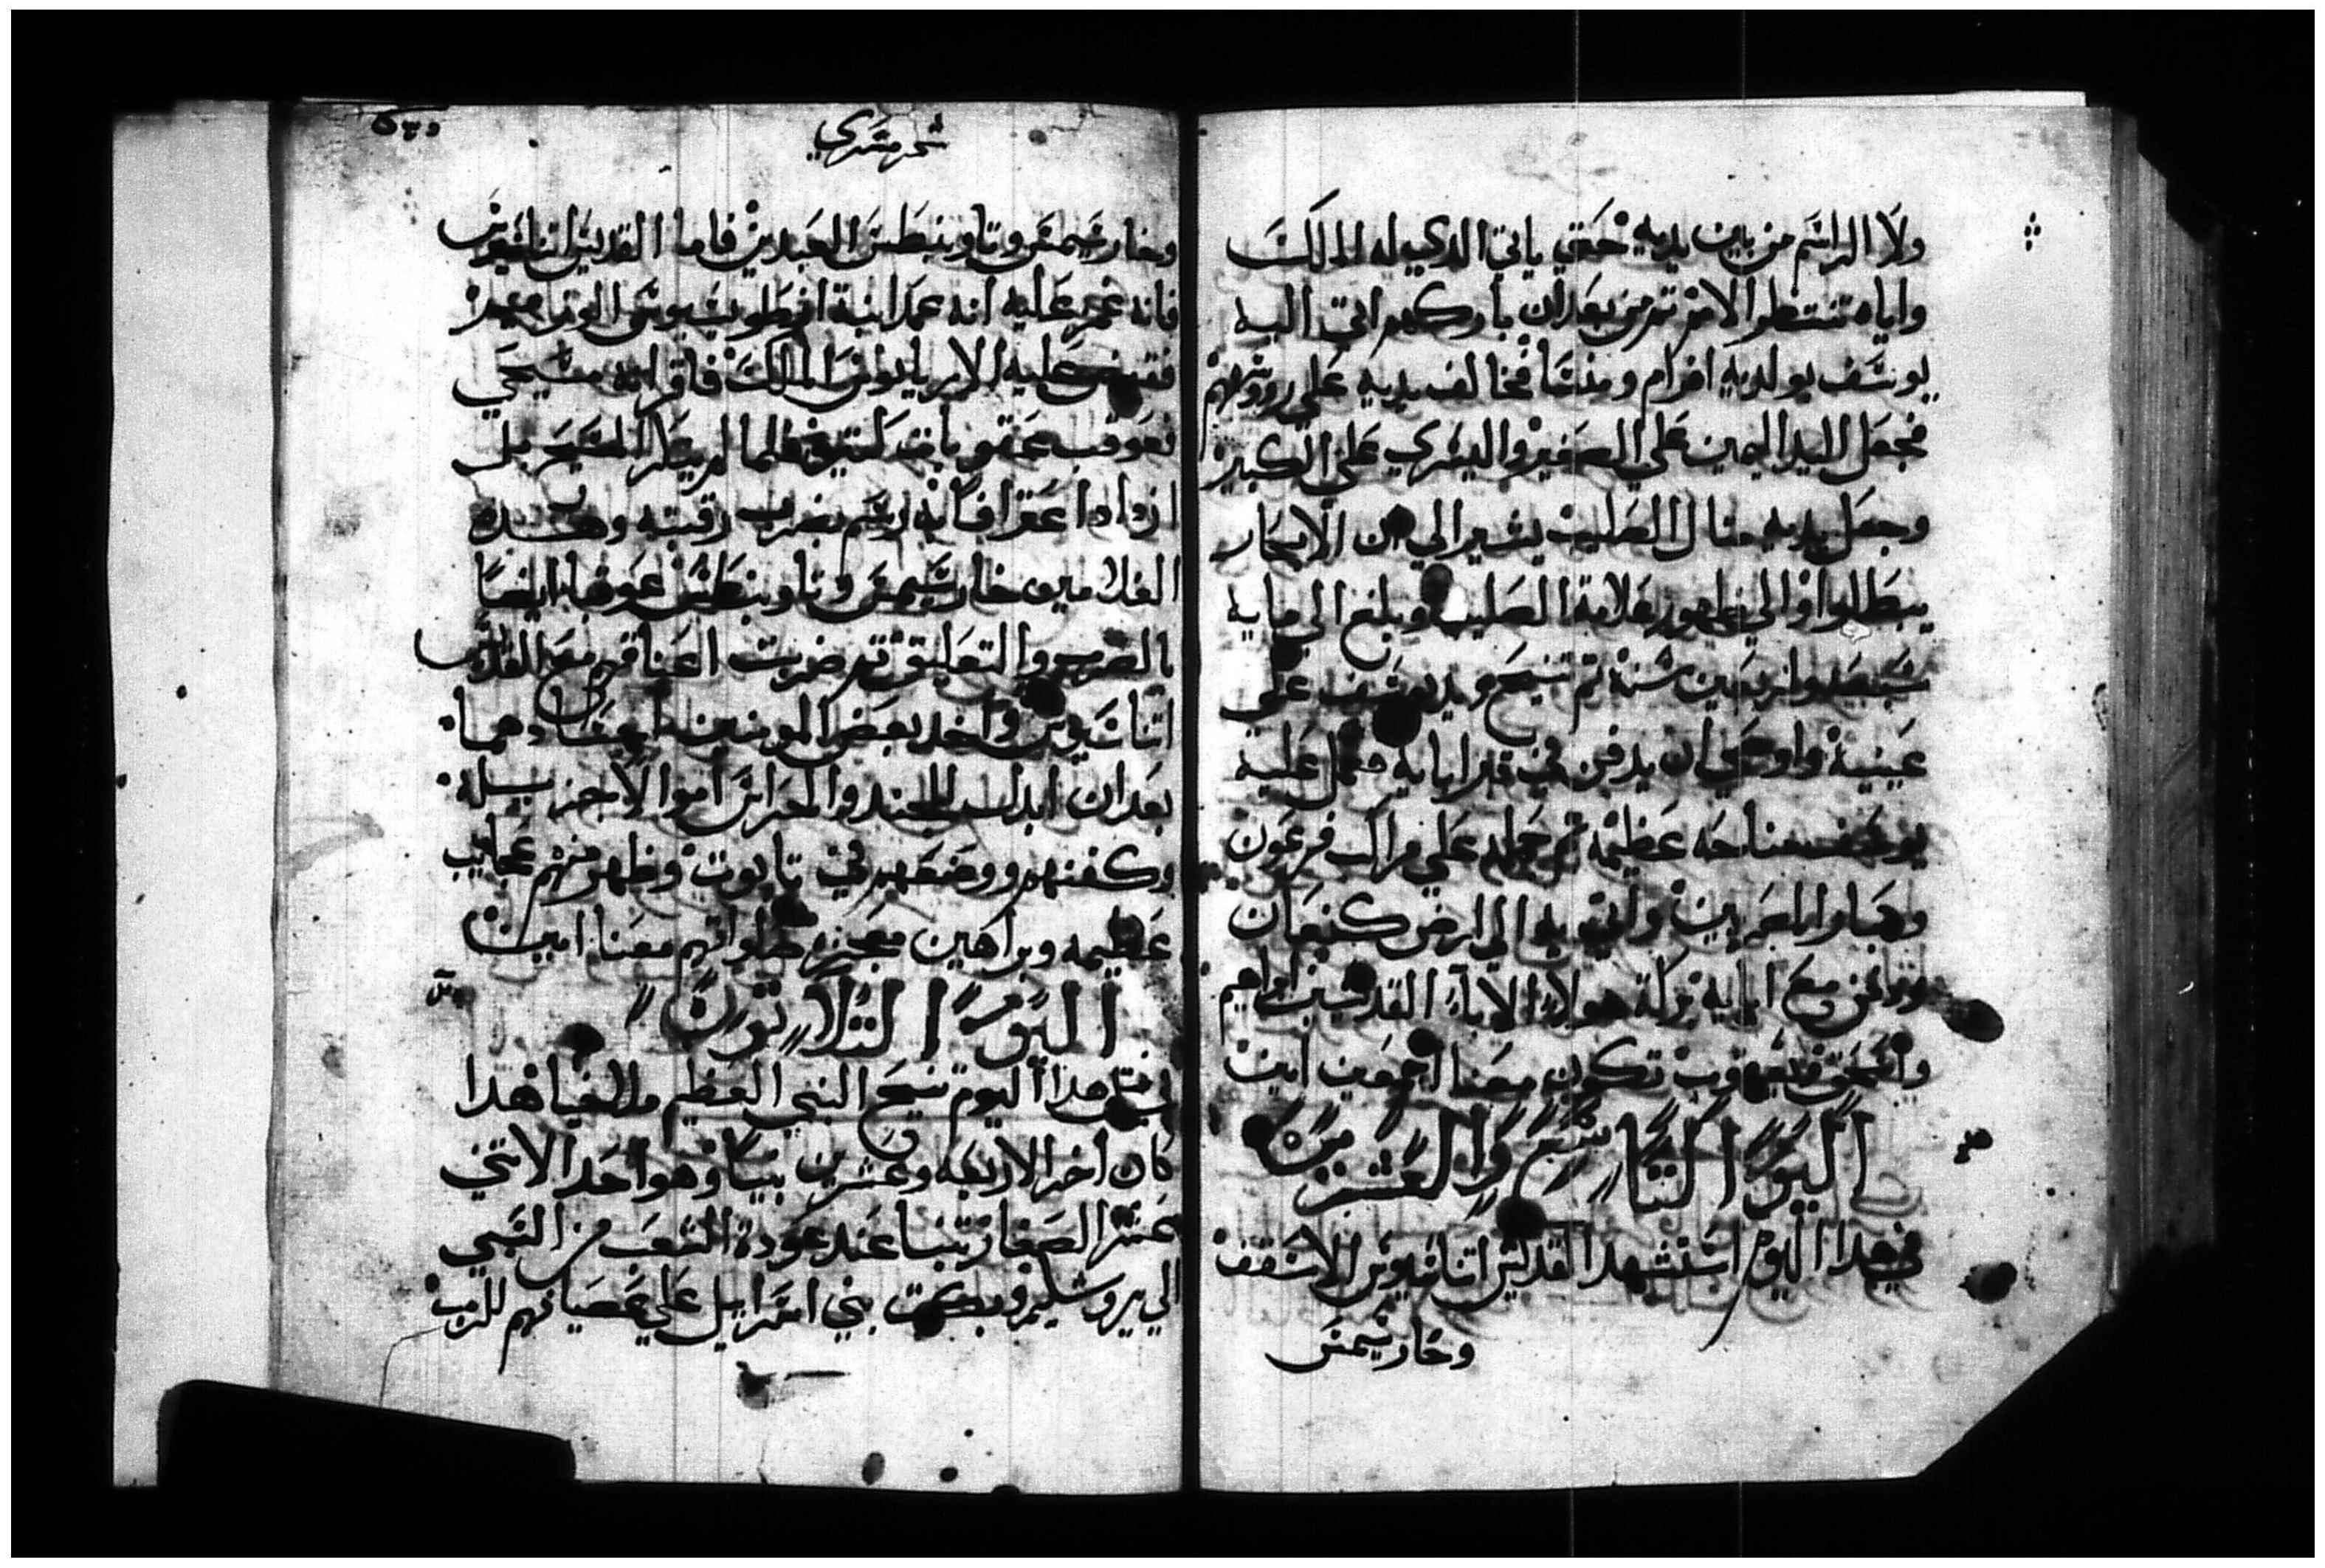 ولا الراسم من بين يديه حتي ياتي الدي له الملك
واياه تنتظر الامم تم من بعد ان باركهم اتي اليه
يوسف بولديه افرام ومنسا فخالف يديه علي رووسهم
فجعل اليد اليمين علي الصغير واليسري علي الكبير
وجعل يديه متال الصليب يشير الي ان الابكار
يبطلوا والي ظهور علامة الصليب وبلغ الي مايه
سبعه واربعين سنة تم تنيح ويد يوسف علي
عينيه واوصي ان يدفن في قبر ابايه فعمل عليه
يوسف مناحه عظيمه تم حمله علي مراكب فرعون
وهباوا المصريين واتي به الي ارض كنعان
ودفن مع ابايه بركة هولاء الاباء القديسين ابراهيم
واسحق ويعقوب تكون معنا اجمعين امين
اليوم التاسع والعشرين
في هدا اليوم استشهد القديس اتناسيوس الاسقف
وخاريسيمس
شهر مسري
وخاريسيمس وتاوبنطس العبدين فاما القديس اتناسيوس
فانه غمز عليه انه عمد ابنة انطونيوس الوزير
فقبض عليه الارياينوس الملك فاقر انه مسيحي
فعوقب عقوبات كتيره فلما لم ينكر المسيح بل
ازداد اعترافا به رسم بضرب رقبته وهده
الغلامين خاريسيمس وتاوبنطس عوقبا ايضا
بالضرب والتعليق تم ضربت اعناقهم مع القديس
اتناسيوس واخد بعض المومنين اجسادهما
بعد ان ابدل للجند والحراس اموالا جزيله
وكفنهم ووضعهم في تابوت وظهر منهم عجايب
عظيمه وبراهين معجزه صلواتهم معنا امين
اليوم التلاتون
في متل هدا اليوم تنيح النبي العظيم ملاخيا هدا
كان اخر الاربعه وعشرين نبيا وهو احد الاتني
عشر الصغار تنبا عند عودة الشعب من السبي
الي يروشليم وبكت بني اسراييل علي عصيانهم للرب